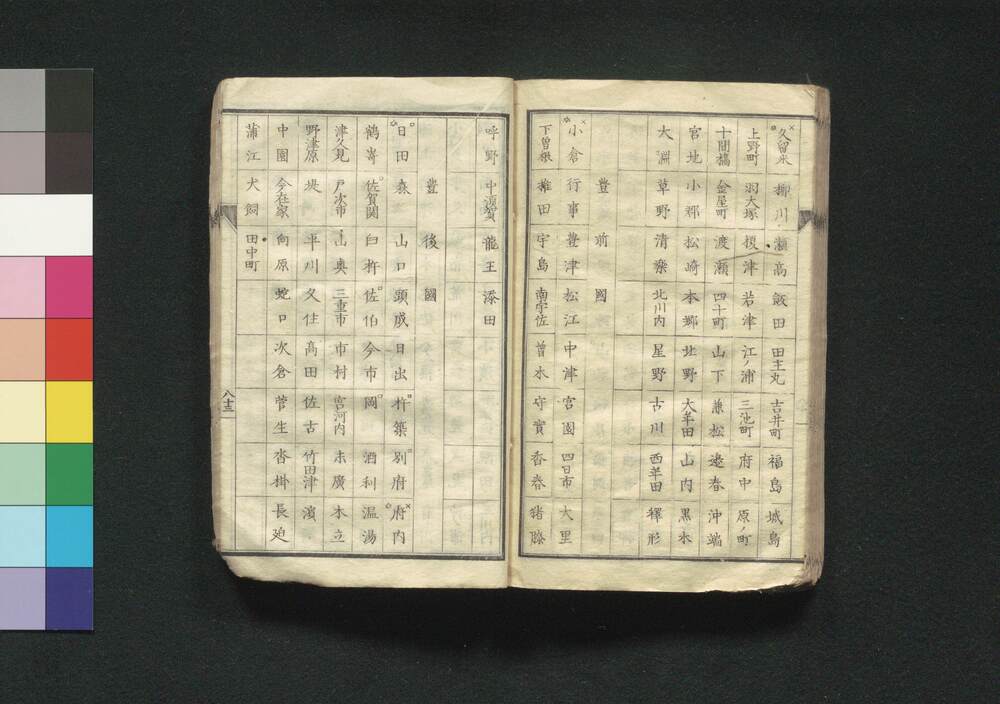 久留米 柳川 瀬高 飯田 田主丸 吉井町 福島 城島
上野町 羽犬塚 榎津 若津 江ノ浦 三池町 府中 原ノ町
十間橋 金屋町 渡瀬 四十町 山下 兼松 邉春 沖端
宮地 小郡 松崎 本郷 北野 大牟田 山内 黒木
大渊 草野 清楽 北川内 星野 古川 西牟田 釋形
豊前國
小倉 行事 豊津 松江 中津 宮園 四日市 大里
下曽根 椎田 宇島 南宇佐 曽木 守實 香春 猪膝
呼野 中須賀 龍王 添田
豊後國
日田 森 山口 頭成 日出 杵築 別府 府内
鶴崎 佐賀関 臼杵 佐伯 今市 岡 酒利 温湯
津久見 戸次市 山奥 三重市 市村 宮河内 末廣 木立
野津原 堤 平川 久住 髙田 佐古 竹田津 濱
中園 今在家 向原 蛇口 次倉 菅生 沓掛 長廻
蒲江 犬飼 田中町
八十三